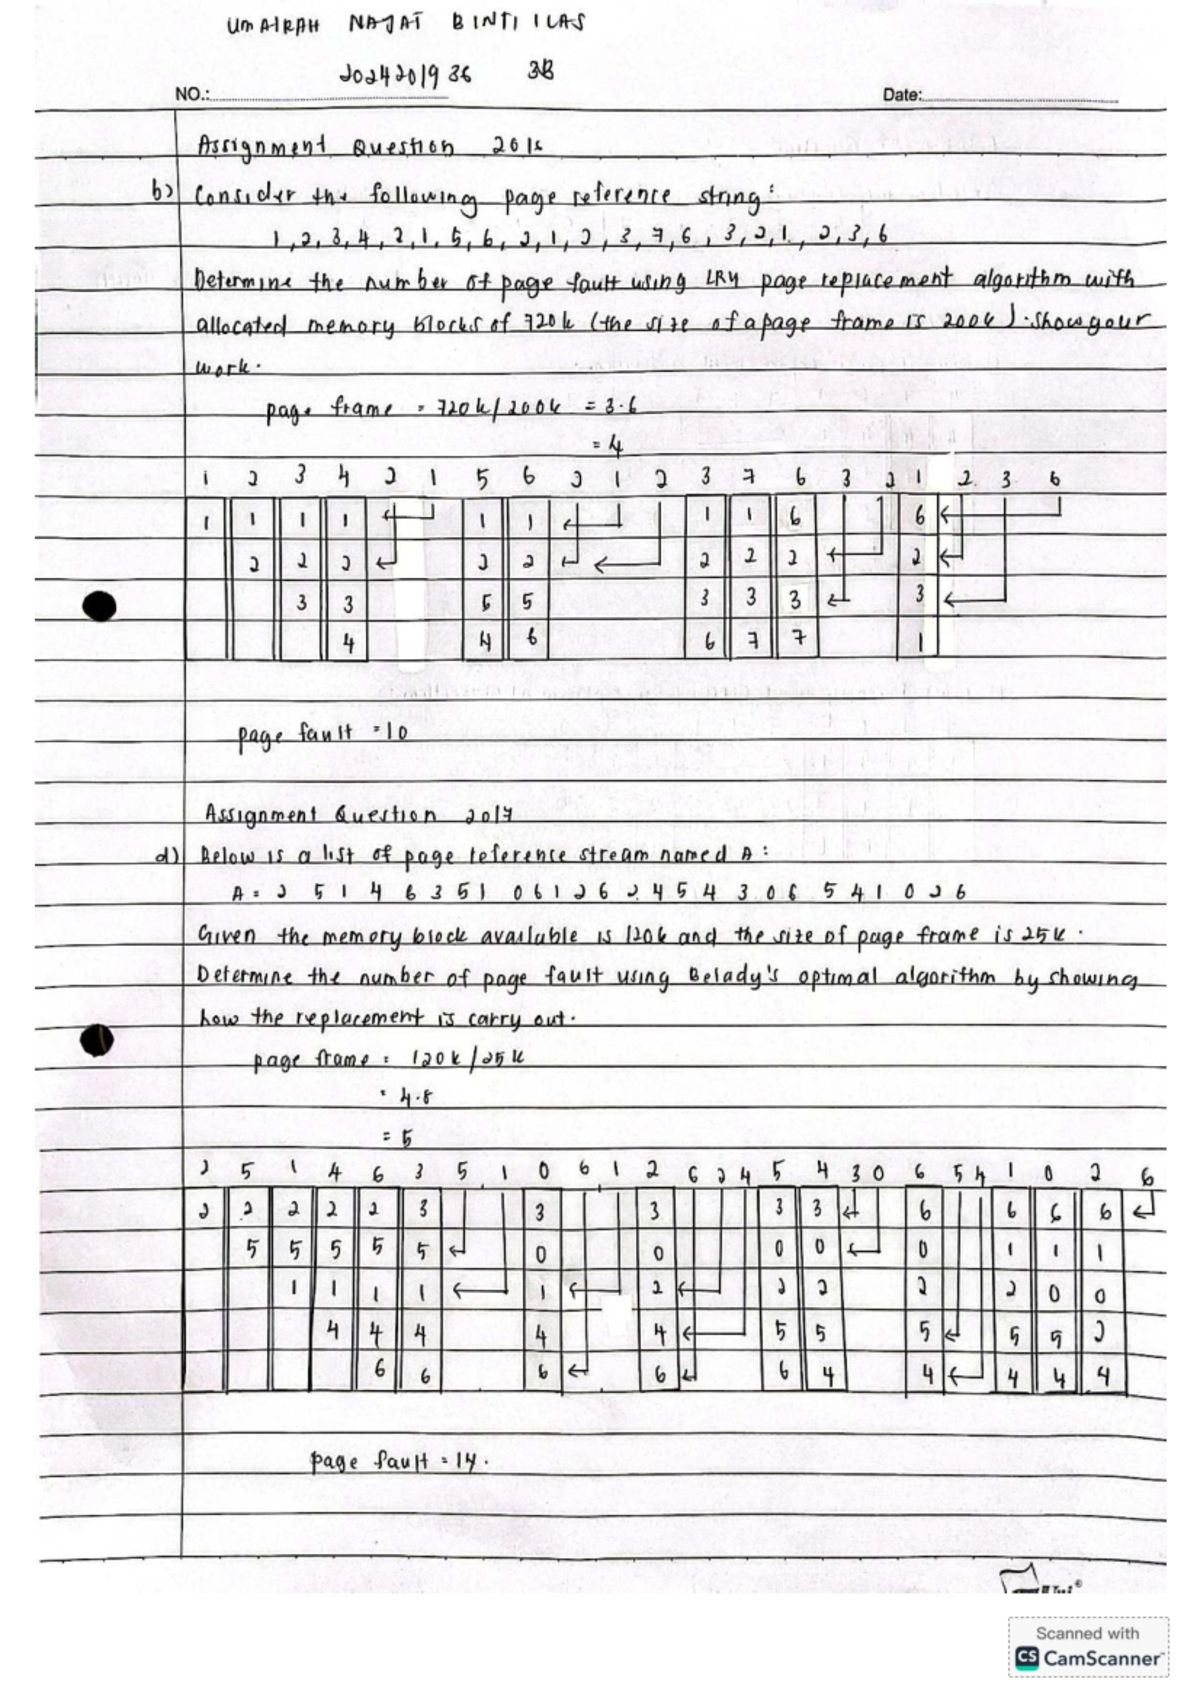 UMAIRAH NAJAT BINTI ILAS
2024201936 3B
NO.: Date:
Assignment Question 2016
b) Consider the following page reference string:
1, 2, 3, 4, 2, 1, 5, 6, 2, 1, 2, 3, 7, 6, 3, 2, 1, 2, 3, 6
Determine the number of page fault using LRU page replacement algorithm with
allocated memory blocks of 720k (the size of a page frame is 200k). Show your
work.
page frame = 720k/200k = 3.6
= 4
1 2 3 4 2 1 5 6 2 1 2 3 7 6 3 2 1 2 3 6
1 1 1 1 1 1 1 1 6 6
2 2 2 2 2 2 2 2 2
3 3 5 5 3 3 3 3
4 4 6 6 7 7 1
page fault = 10
Assignment Question 2017
d) Below is a list of page reference stream named A:
A = 2 5 1 4 6 3 5 1 0 6 1 2 6 2 4 5 4 3 0 6 5 4 1 0 2 6
Given the memory block available is 120k and the size of page frame is 25k.
Determine the number of page fault using Belady's optimal algorithm by showing
how the replacement is carry out.
page frame = 120k/25k
= 4.8
= 5
2 5 1 4 6 3 5 1 0 6 1 2 6 2 4 5 4 3 0 6 5 4 1 0 2 6
2 2 2 2 2 3 3 3 3 3 6 6 6 6
5 5 5 5 5 0 0 0 0 0 1 1 1
1 1 1 1 1 2 2 2 2 2 0 0
4 4 4 4 4 5 5 5 5 5 2
6 6 6 6 6 4 4 4 4 4
page fault = 14.
Scanned with
CS CamScanner